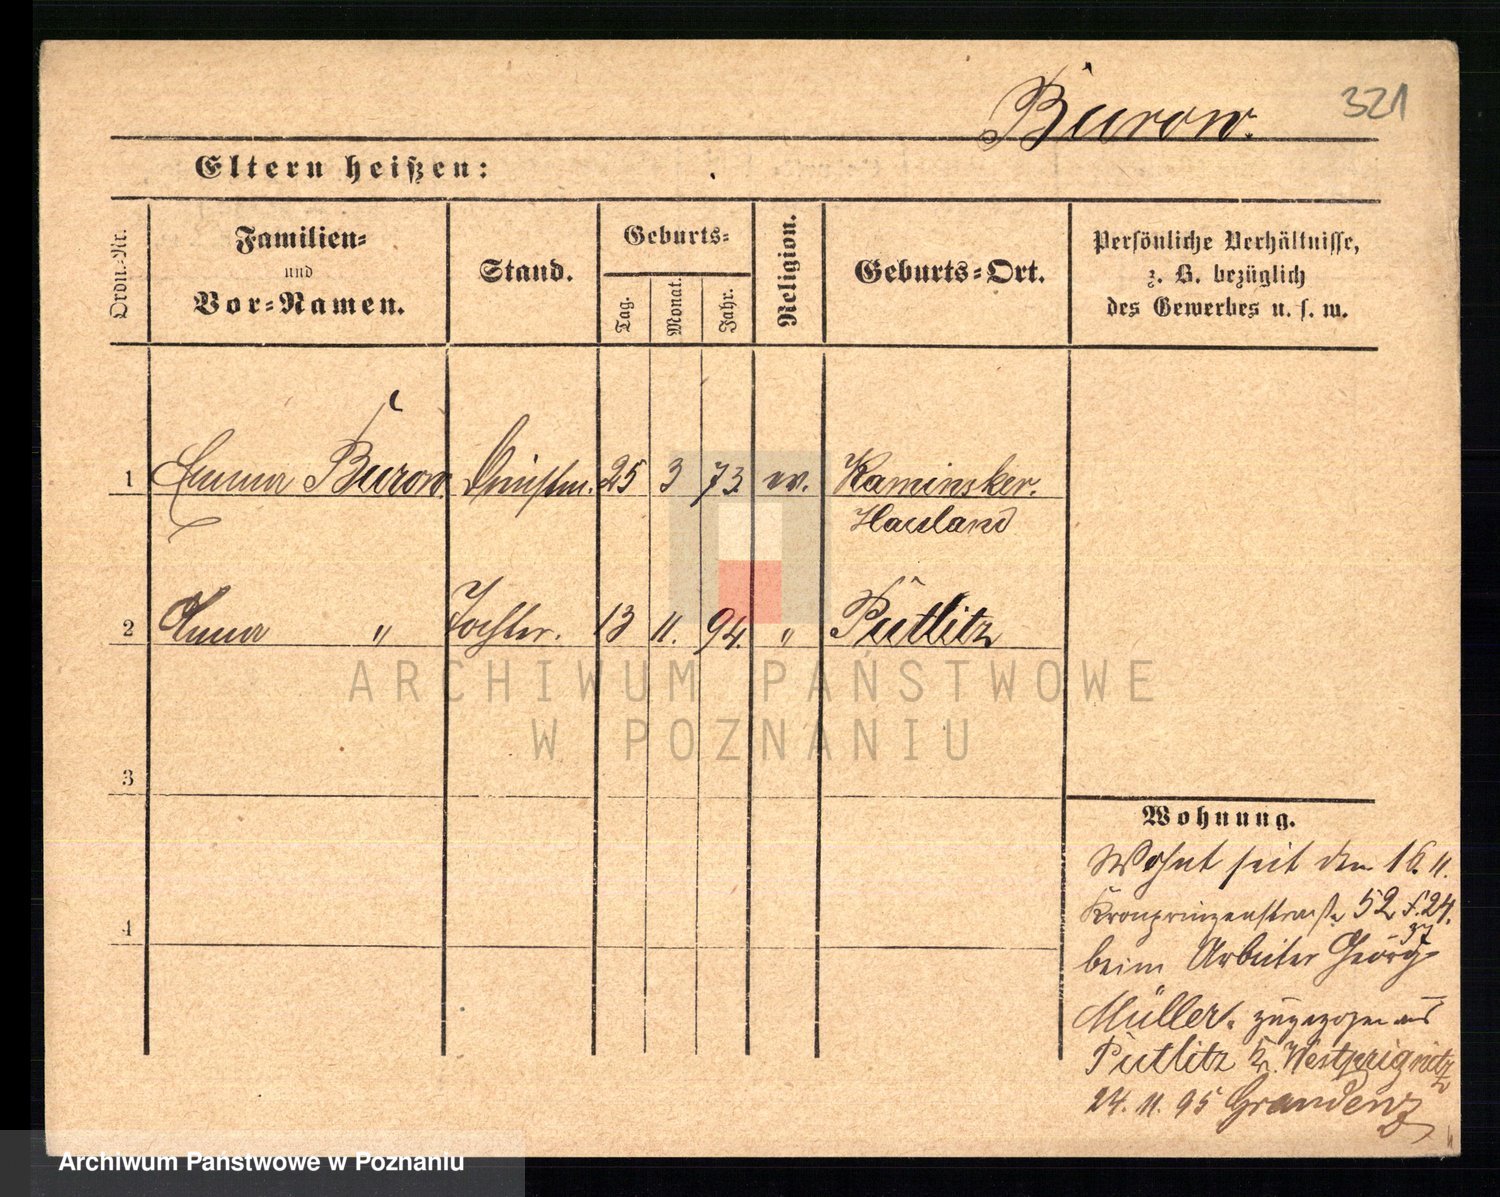 Burow. 321
Eltern heißen:
Ordn.-Nr.
Familien-
und
Vor-Namen.
Stand.
Geburts-
Tag.
Monat.
Jahr.
Religion.
Geburts-Ort.
Persönliche Verhältnisse,
z. B. bezüglich
des Gewerbes u. s. w.
1 Emma Burow. 25 3 73. ev. Kaminsker.
Hauland
2 Anna " Tochter. 13 11. 94. " Putlitz
ARCHIWUM PAŃSTWOWE
W POZNANIU
3
4
Wohnung.
Wohnt seit dem 16. 11.
Kronprinzenstraße 52
beim Arbeiter Georg
Müller. zugezogen aus
Putlitz Kr. Westprignitz
24. 11. 95 Graudenz
Archiwum Państwowe w Poznaniu